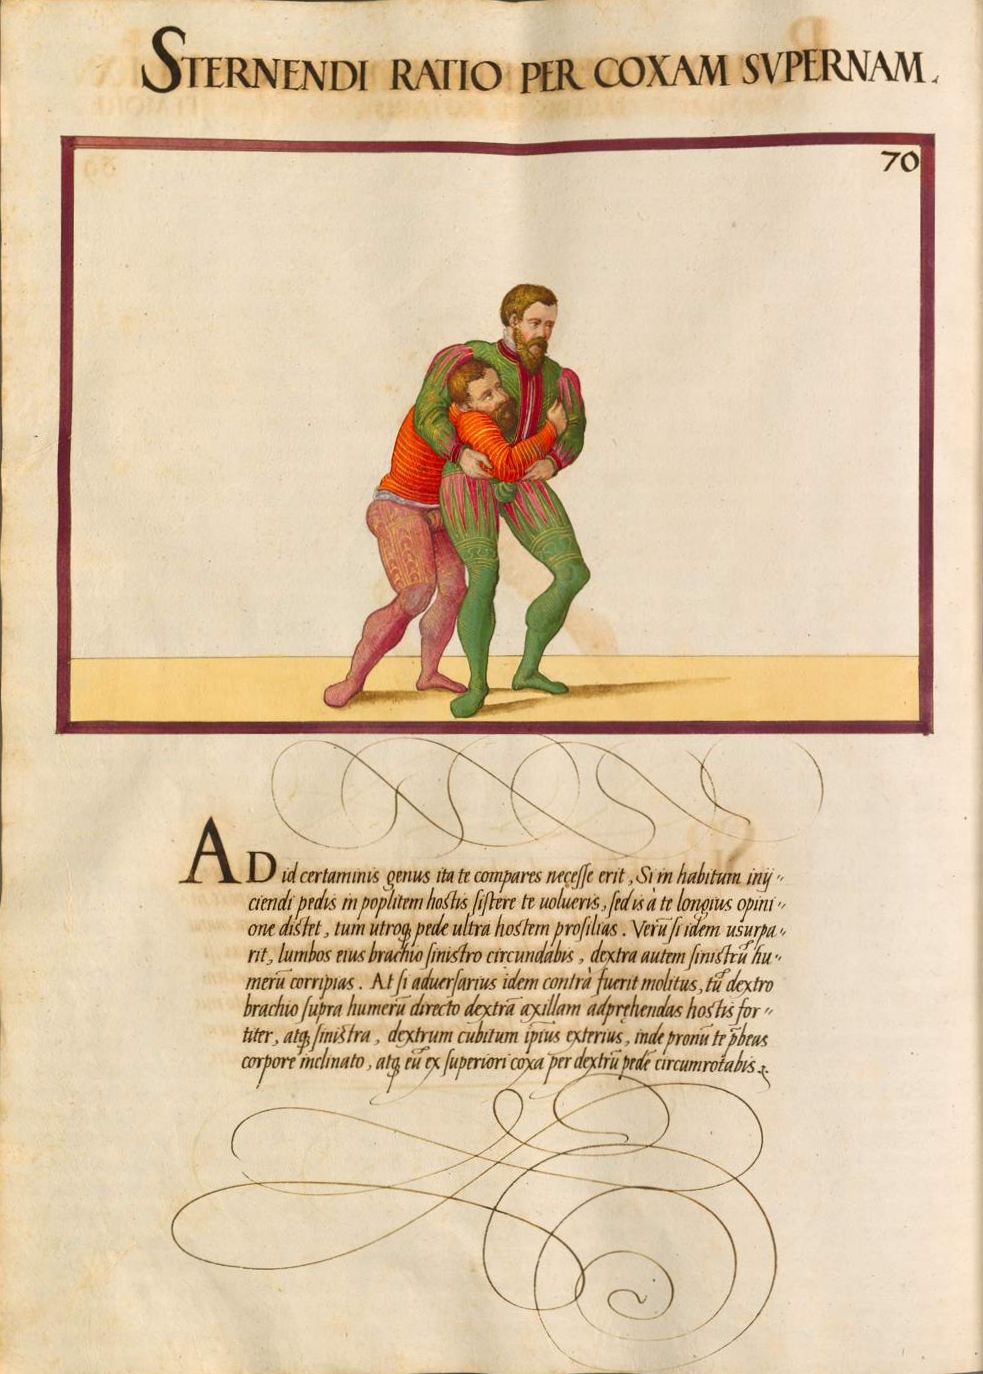 STERNENDI RATIO PER COXAM SVPERNAM.
70
AD id certaminis genus ita te compares necesse erit, Si in habitum inij〃
ciendi pedis in poplitem hostis sistere te uolueris, sed is à te longius opini〃
one distet, tum utroq; pede ultra hostem prosilias. Verũ si idem usurpa〃
rit, lumbos eius brachio sinistro circundabis, dextra autem sinistrũ hu〃
merũ corripias. At si aduersarius idem contrà fuerit molitus, tũ dextro
brachio supra humerũ directo dextrã axillam adpręhendas hostis for〃
titer, atq; sinistra, dextrum cubitum ipsius exterius, inde pronũ te p̃beas
corpore inclinato, atq; eũ ex superiori coxa per dextrũ pedẽ circumrotabis.